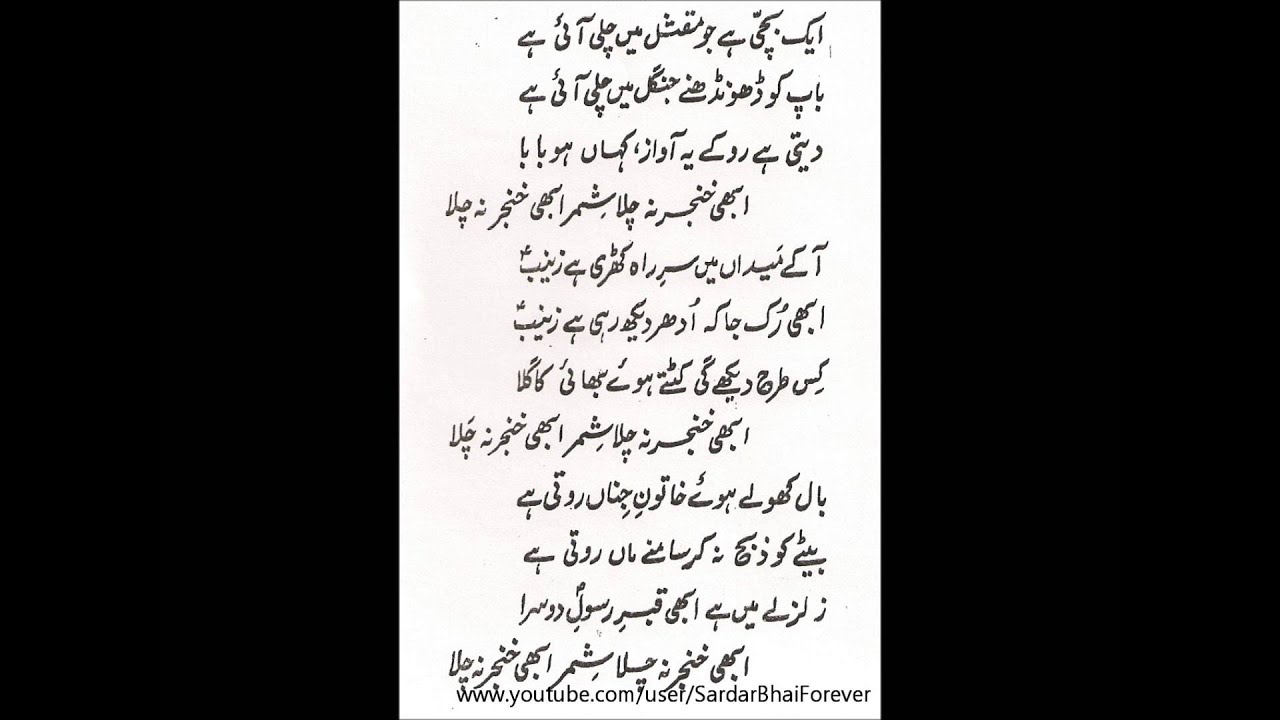 ایک بچّی ہے جو مقتل میں چلی آئی ہے
باپ کو ڈھونڈھنے جنگل میں چلی آئی ہے
دیتی ہے رو کے یہ آواز، کہاں ہو بابا
ابھی خنجر نہ چلا شِمر ابھی خنجر نہ چلا
آ کے مَیداں میں سرِ راہ کھڑی ہے زینبؑ
ابھی رُک جا کہ اُدھر دیکھ رہی ہے زینبؑ
کِس طرح دیکھے گی کٹتے ہوئے بھائی کا گلا
ابھی خنجر نہ چلا شِمر ابھی خنجر نہ چَلا
بال کھولے ہوئے خاتونِ جِناں روتی ہے
بیٹے کو ذبح نہ کر سامنے ماں روتی ہے
زلزلے میں ہے ابھی قبرِ رسولِؐ دوسرا
ابھی خنجر نہ چلا شِمر ابھی خنجر نہ چلا
www.youtube.com/user/SardarBhaiForever